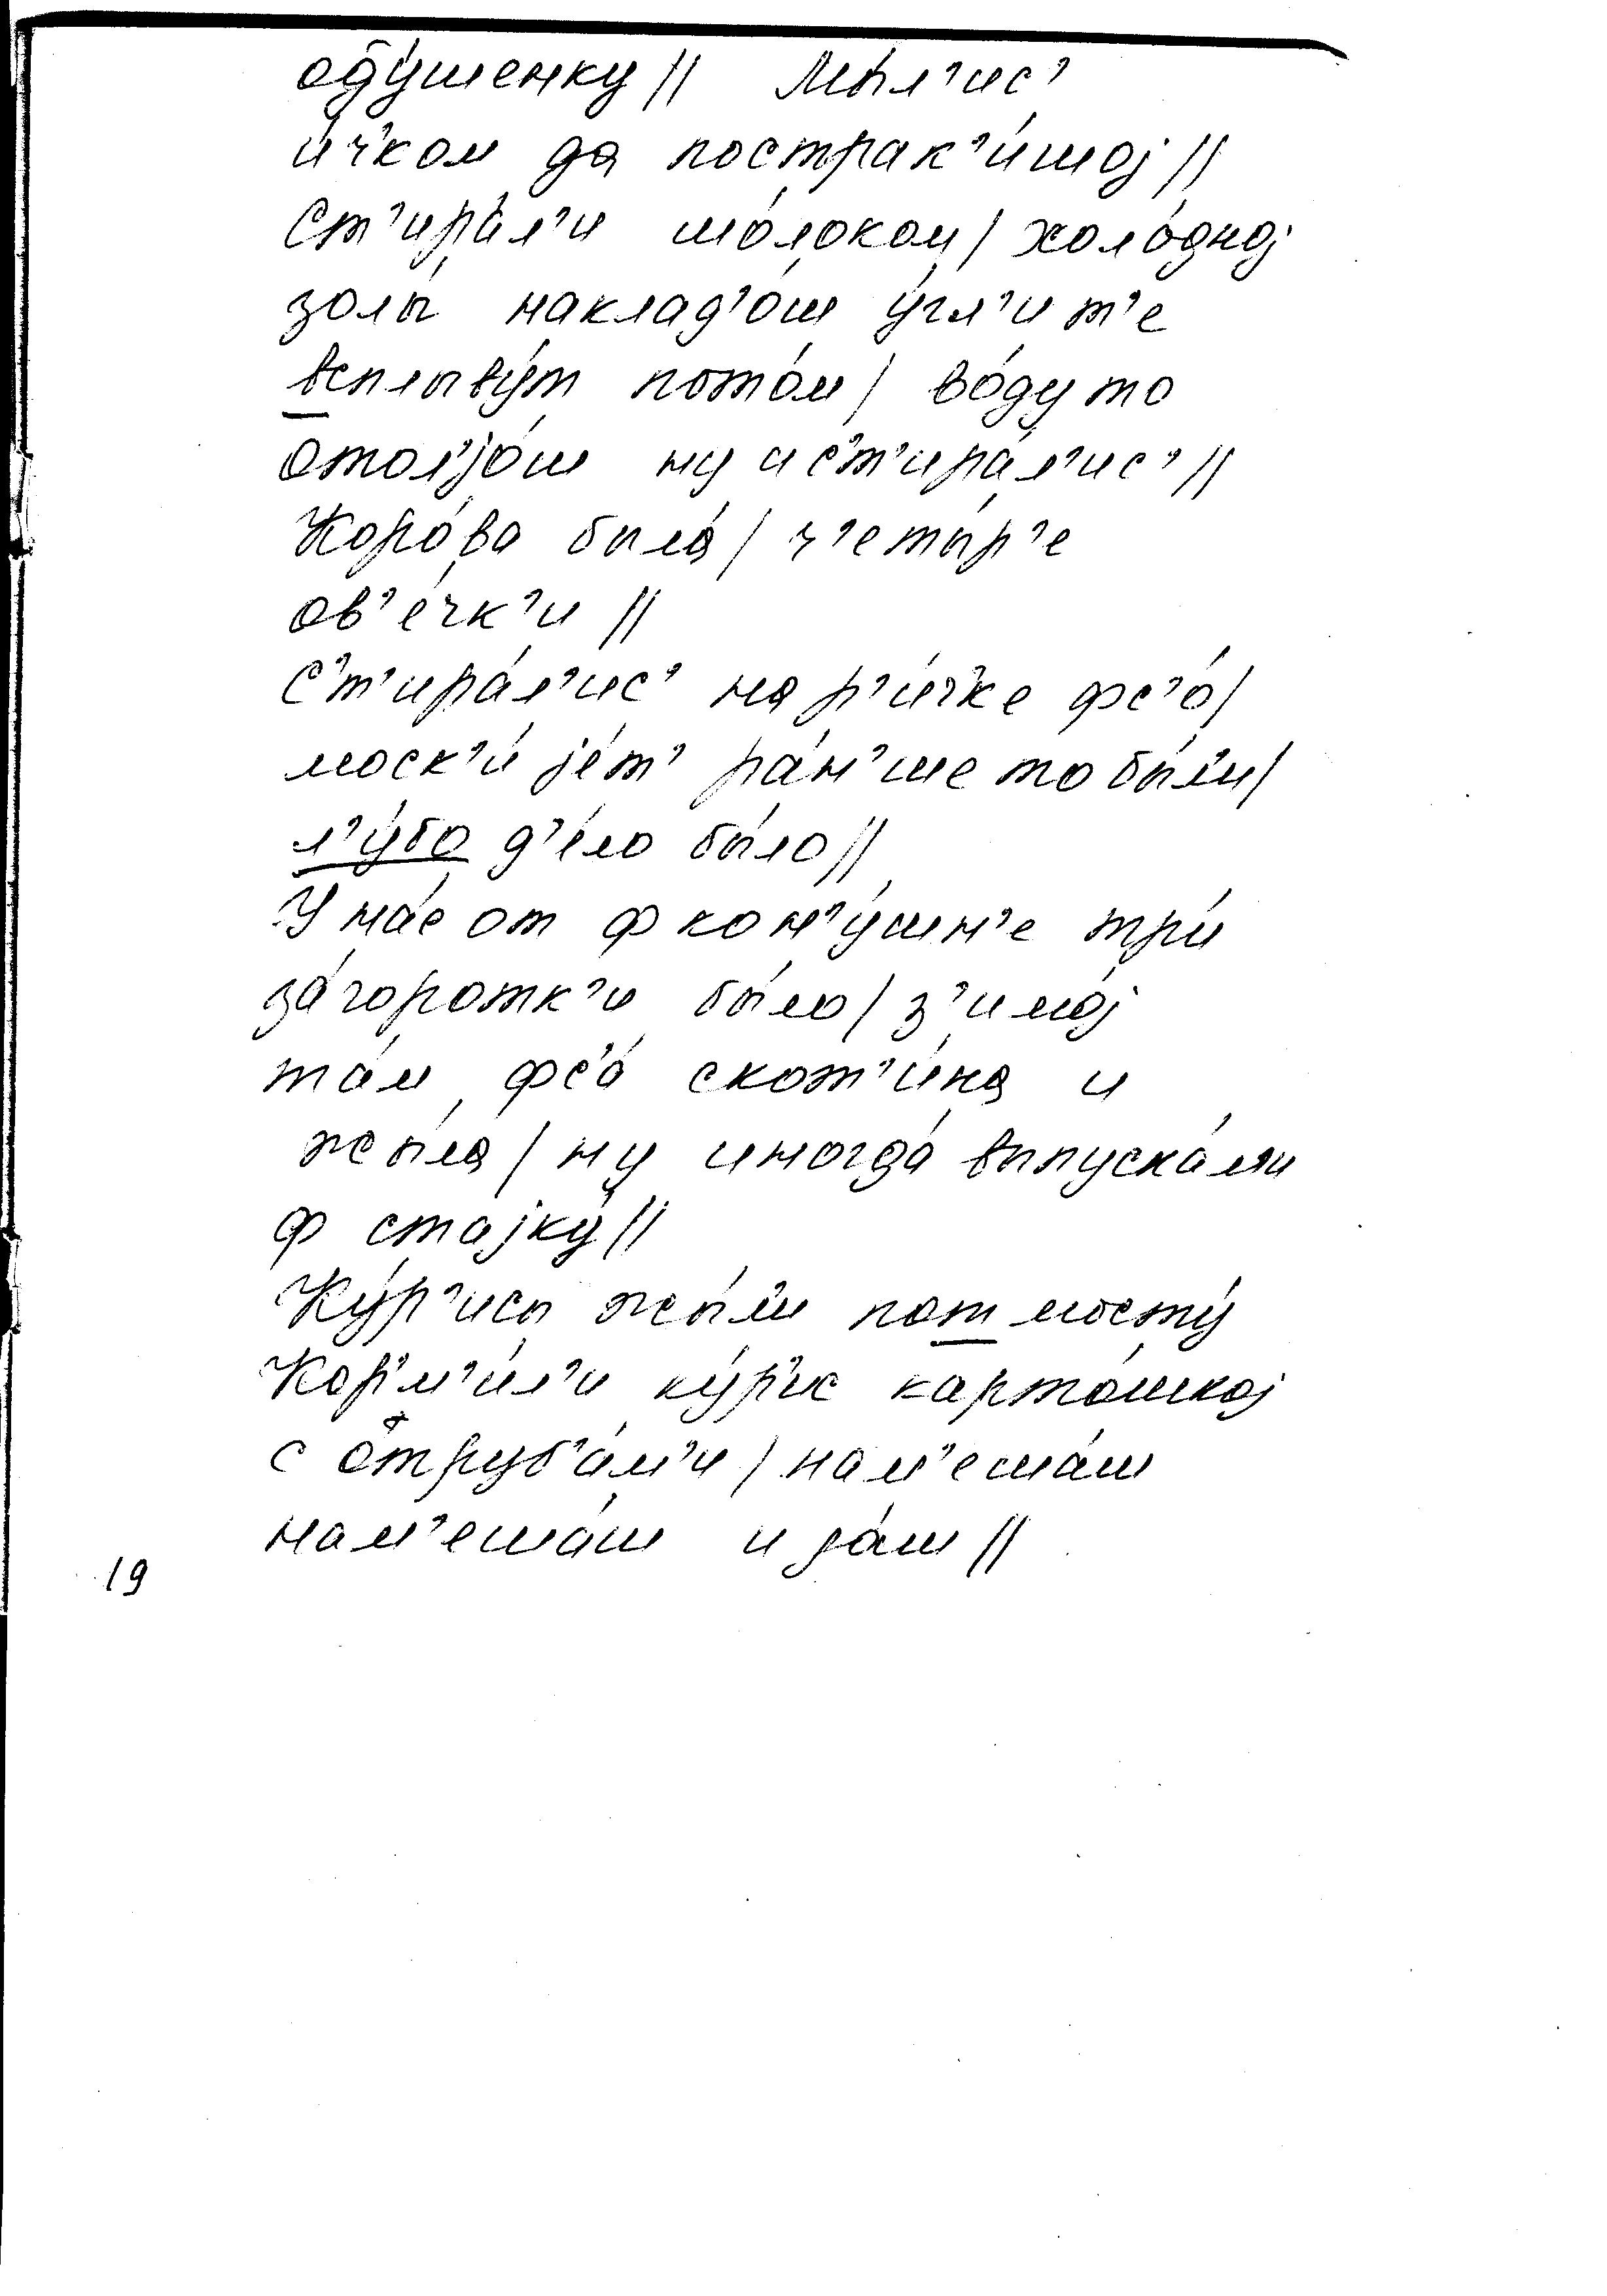 оду́шенку // Мы́л'ис'
и́ч'ком да пострак'и́шој //
Ст'ира́л'и шо́локом / холо́дној
золы́ наклад'о́ш у́гл'и т'е
всплыву́т пото́м / во́ду то
отол'јо́ш ну и с'т'ира́л'ис' //
Коро́ва была́ / ч'еты́р'е
ов'е́чк'и //
С'т'ира́л'ис' на р'и́ч'ке фс'о́ /
моск'и́ је́т' ра́н'ше то бы́л'и /
л'у́бо д'е́ло бы́ло //
У на́с от ф кон'у́шн'е три́
за́горотк'и бы́ло / з'имо́ј
та́м фс'а́ скот'и́на и
жы́ла / ну иногда́ выпуска́л'и
ф стајку́ //
Ку́р'исы жы́л'и пот мосту́
Корм'и́л'и ку́р'ис карто́шкој
с отруб'а́м'и / нам'еша́ш
нам'еша́ш и да́ш //
19